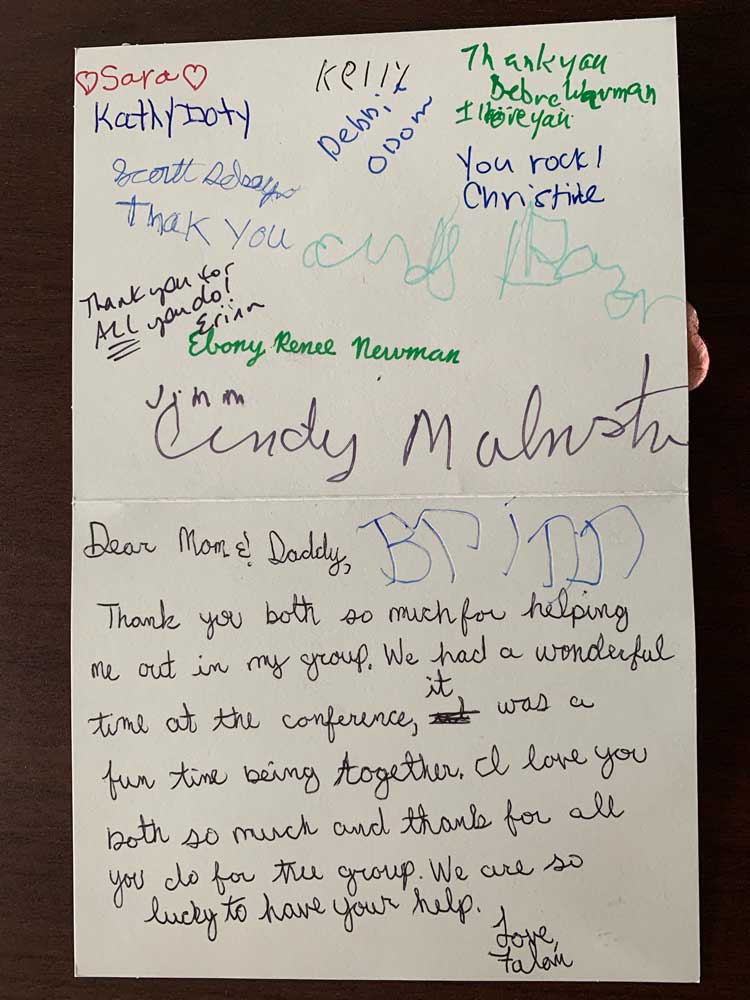 ♡Sara♡
Kelly
Thank you
Debra Warman
I love you
Kathy Doty
Debbie
Odom
You rock!
Christine
Scott
Thak You
Cindy
Thank you for
ALL you do!
Erinn
Ebony Renee Newman
Jimm
Cindy
Dear Mom & Daddy,
Brinn
Thank you both so much for helping
me out in my group. We had a wonderful
time at the conference, it was a
fun time being together. I love you
both so much and thanks for all
you do for the group. We are so
lucky to have your help.
Love,
Falon